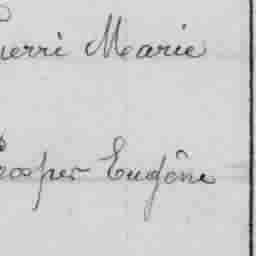 ierri Marie
rosper Eugène